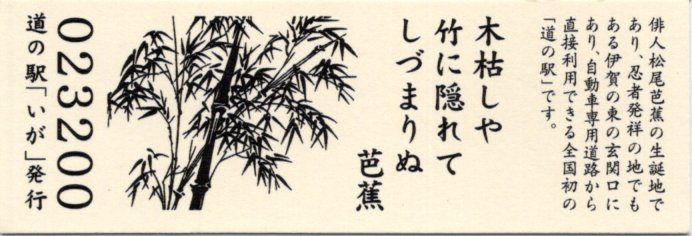 俳人松尾芭蕉の生誕地で
あり、忍者発祥の地でも
ある伊賀の東の玄関口に
あり、自動車専用道路から
直接利用できる全国初の
「道の駅」です。
木枯しや
竹に隠れて
しづまりぬ
芭蕉
023200
道の駅「いが」発行